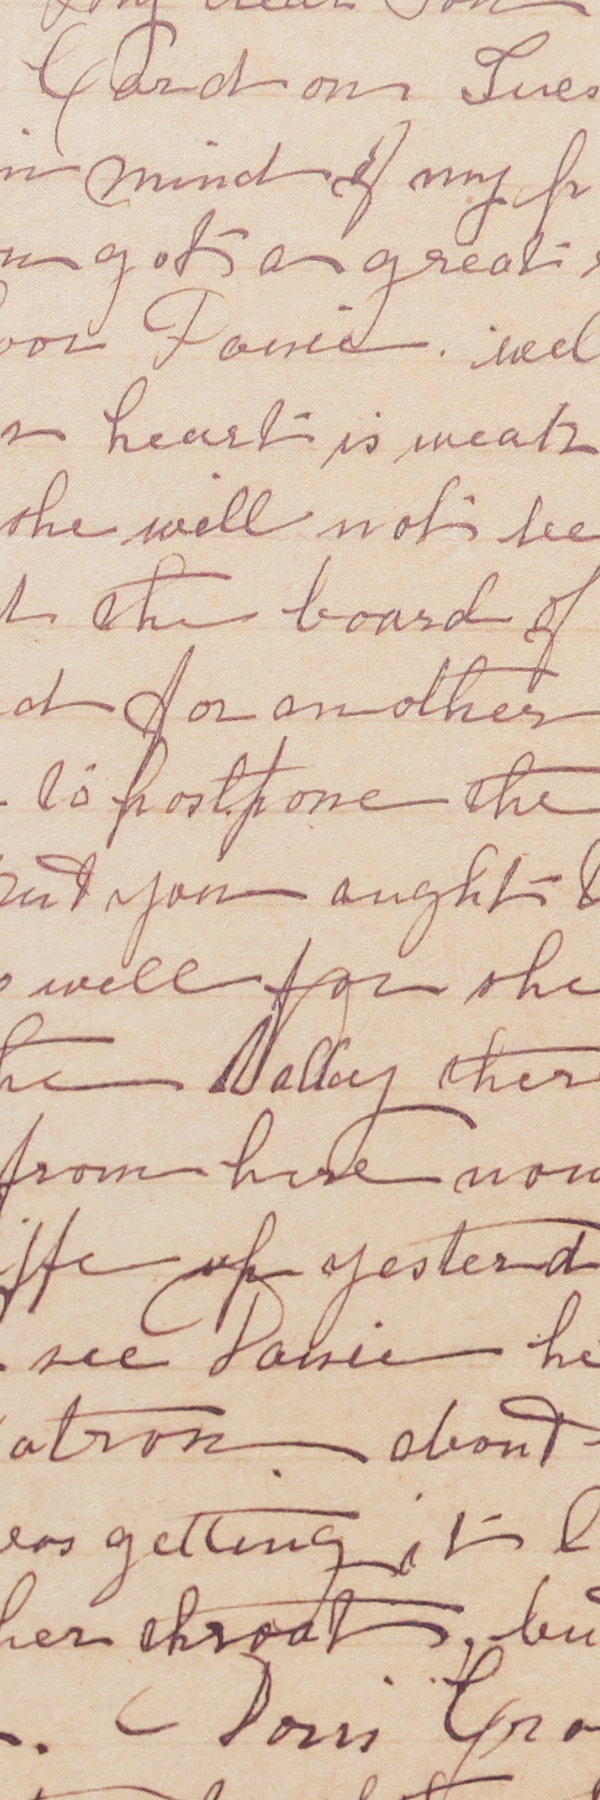 my dear Son
Card on Tues
in mind of my fr
got a great
oor Tansie. wel
heart is weak
she will not be
the board of
d for another
to postpone the
but you aught
well for she
he Valley there
from here now
iffe up yesterd
see Tansie he
atron about
eas getting it
her throat, but
. Doris Gra